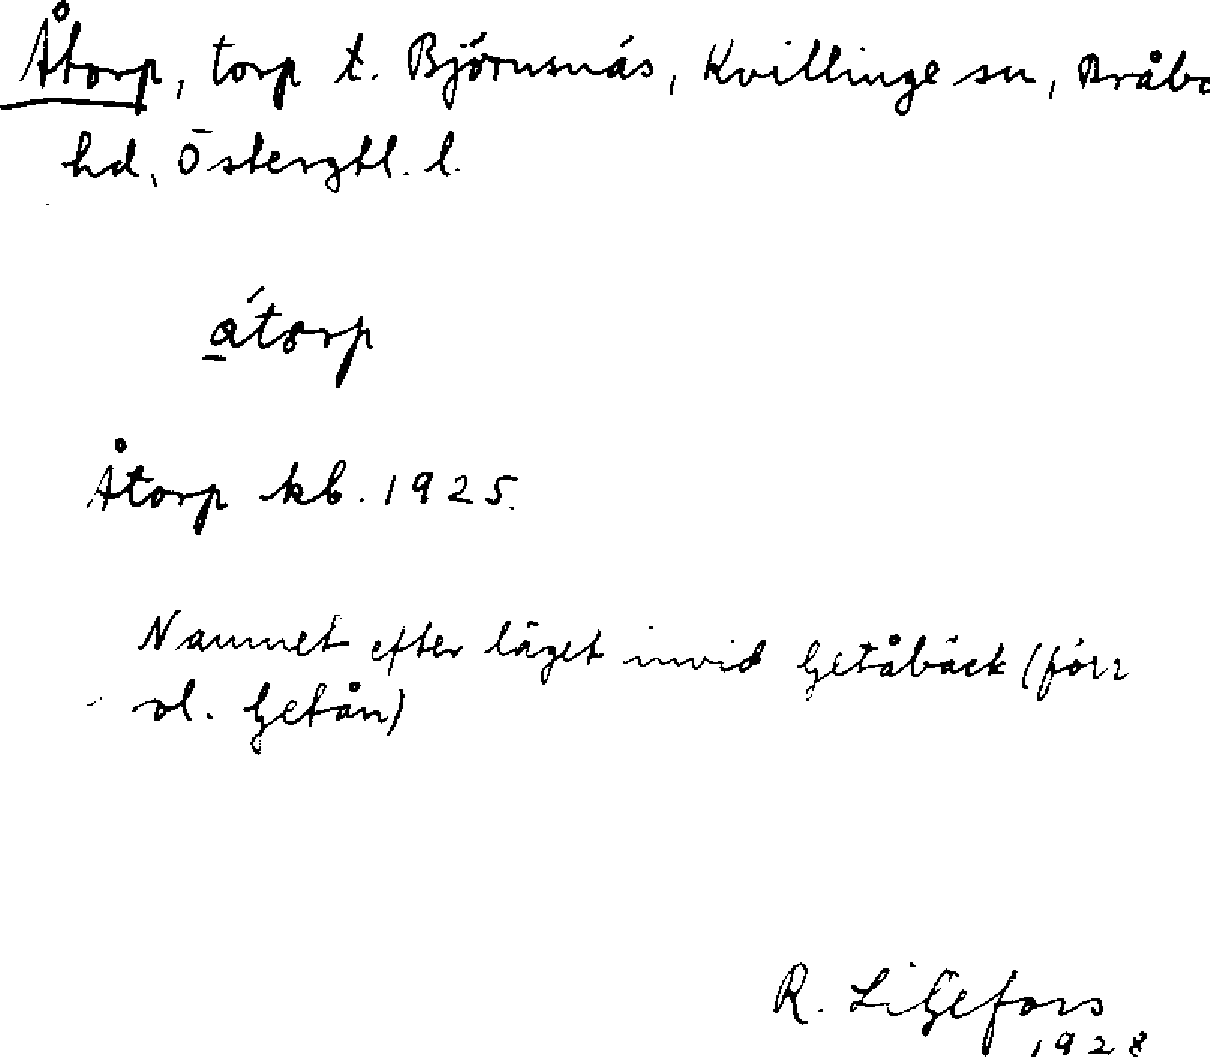 Åtorp, torp t. Björnsnäs, Kvillinge sn, Bråbo
hd, Östergtl. l.
átorp
Åtorp kb. 1925.
Namnet efter läget invid Getåbäck (förr
el. Getån)
R. Liljefors
1928